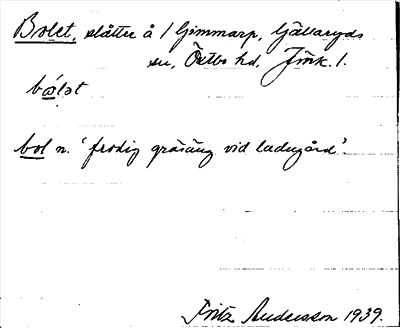 Bolet, slåtter å 1 Gimmarp, Gällaryds
sn, Östbo hd. Jönk. l.
bω̂lət
bol n. 'frodig gräsäng vid ladugård'.
Fritz Andersson 1939.